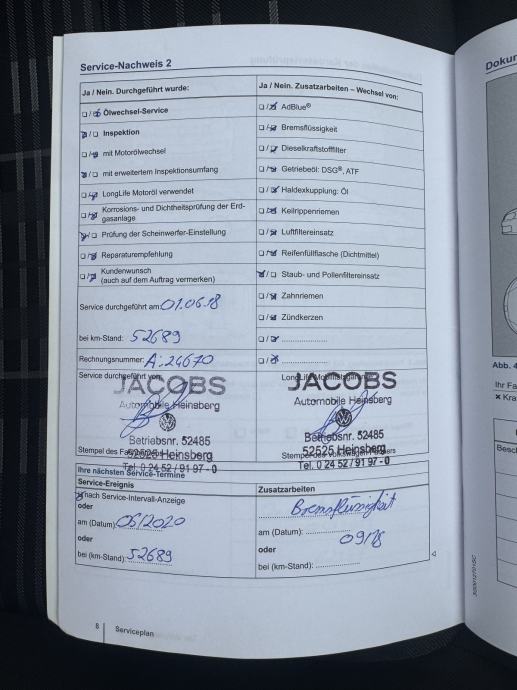 Service-Nachweis 2
Ja / Nein. Durchgeführt wurde:
Ölwechsel-Service
Inspektion
mit Motorölwechsel
mit erweitertem Inspektionsumfang
LongLife Motoröl verwendet
Korrosions- und Dichtheitsprüfung der Erd-
gasanlage
Prüfung der Scheinwerfer-Einstellung
Reparaturempfehlung
Kundenwunsch
(auch auf dem Auftrag vermerken)
Service durchgeführt am: 01.06.18
bei km-Stand: 52689
Rechnungsnummer: A:24670
Service durchgeführt von
JACOBS
Automobile Heinsberg
Betriebsnr. 52485
52525 Heinsberg
Tel. 0 24 52 / 91 97 - 0
Stempel des
Ja / Nein. Zusatzarbeiten – Wechsel von:
AdBlue®
Bremsflüssigkeit
Dieselkraftstofffilter
Getriebeöl: DSG®, ATF
Haldexkupplung: Öl
Keilrippenriemen
Luftfiltereinsatz
Reifenfüllflasche (Dichtmittel)
Staub- und Pollenfiltereinsatz
Zahnriemen
Zündkerzen
JACOBS
Automobile Heinsberg
Betriebsnr. 52485
52525 Heinsberg
Tel. 0 24 52 / 91 97 - 0
Ihre nächsten Service-Termine
Service-Ereignis
nach Service-Intervall-Anzeige
oder
am (Datum): 06/2020
oder
bei (km-Stand): 52689
Zusatzarbeiten
Bremsflüssigkeit
am (Datum):
09/18
oder
bei (km-Stand):
8
Serviceplan
Dokum
Abb. 4
Ihr Fa
× Kra
Besch